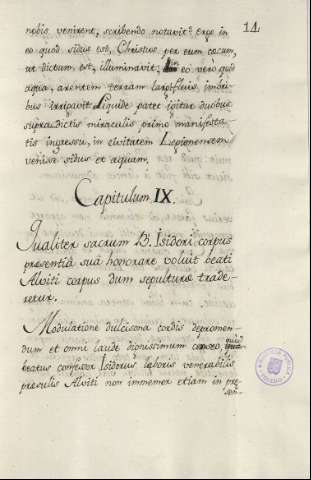 14
nobis venirent, scribendo notavit: Ergo in
eo quod sidus est, Christus per eum cæcum,
ut dictum est, illuminavit; in eo verò quod
aqua, arentem terram largifluis, imbri-
bus irrigavit. Liquide patet igitur duobus
supradictis miraculis primo manifesta-
tis ingressu, in civitatem Legionensem
venisse sidus et aquam.
Capitulum IX.
Qualiter sacrum B. Isidori corpus
presentia sua honorare voluit beati
Alviti corpus dum sepulturæ trade-
retur.
Modulatione dulcissona cordis depromen-
dum et omni laude dignissimum censeo, quod
beatus confessor Isidorus laboris venerabilis
presulis Alviti non immemor etiam in pre-
sen-